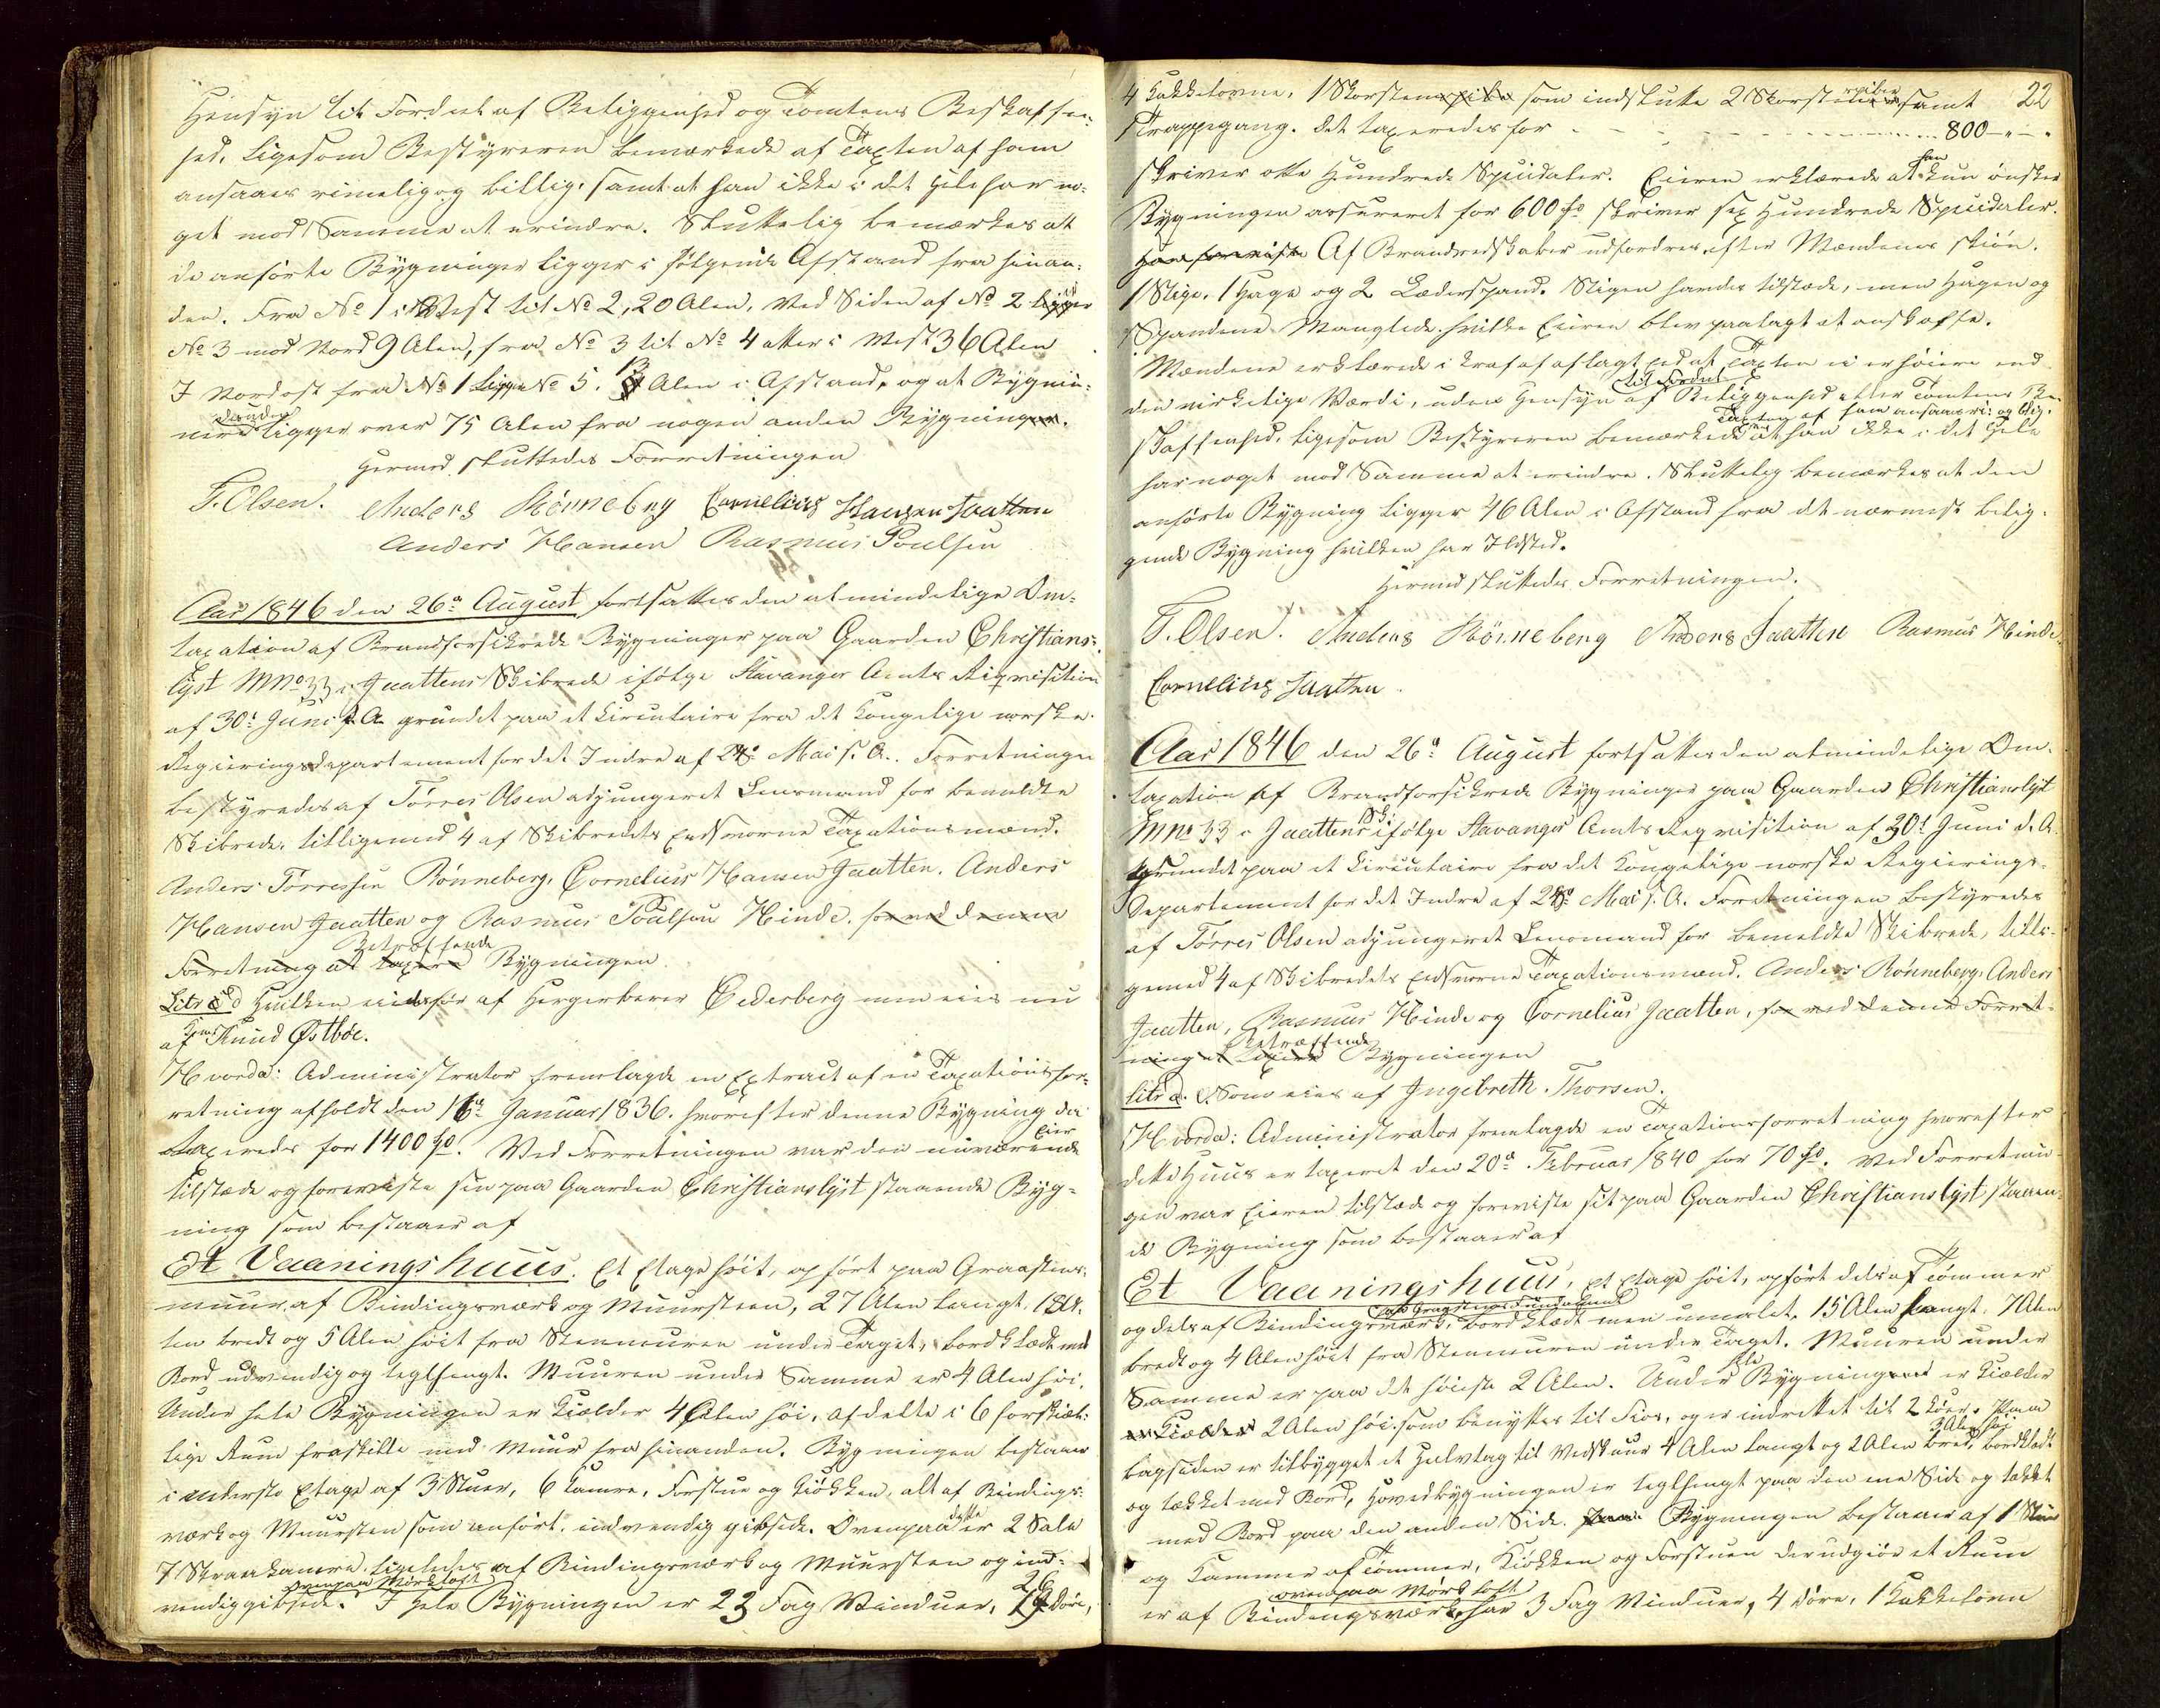 Hensyn til Fordeel af Beliggenhed og Tomtens Beskaffen-
hed, ligesom Bestyreren bemærkede af Taxten af ham
ansaaes rimelig og billig, samt at han ikke i det Hele har no-
get mod Samme at erindre. Sluttelig bemærkes at
de anførte Bygninger ligger i følgende Afstand fra hinan-
den. Fra No 1 i West til No 2, 20 Alen. Ved Siden af No 2 ligger
No 3 mod Nord 9 Alen, fra No 3 til No 4 atter i West 36 Alen
I Nordost fra No 1 ligger No 5. 13 Alen i Afstand, og at Bygnin-
desuden
ligger over 75 Alen fra nogen anden Bygning.
Hermed sluttedes Forretningen
T. Olsen. Anders Rönneberg Cornelius Hansen Jaatten
Anders Hansen Rasmus Poulsen
Aar 1846 den 26de August fortsattes den almindelige Om-
taxation af Brandforsikrede Bygninger paa Gaarden Christians-
lyst MNo 33 i Jaattens Skibrede ifølge Stavanger Amts Reqvisition
af 30te Juni d. A. grundet paa et Circulaire fra det Kongelige norske
Regieringsdepartement for det Indre af 28de Mai s. A. Forretningen
bestyredes af Tørres Olsen adjungeret Lensmand for bemeldte
Skibrede, tilligemed 4 af Skibredets Eedsvorne Taxationsmænd.
Anders Tørressen Rönneberg, Cornelius Hansen Jaatten, Anders
Hansen Jaatten og Rasmus Poulsen Hinde, for ved denne
Betræffende
Forretning at taxere Bygningen
Litr d Hvilken eiedes før af Hergerberer Cederberg men eies nu
af Knud Østbøe.
Hvorda: Administrator fremlagde en Extract af en Taxationsfor-
retning afholdt den 16de Januar 1836. hvorefter denne Bygning da
taxeredes for 1400 Spd. Ved Forretningen var den nuværende
Eier
tilstæde og foreviste sin paa Gaarden Christianslyst staaende Byg-
ning som bestaaer af
Et Vaaningshuus. Et Etage høit, opført paa Graasteens-
muur, af Bindingsværk og Muursteen, 27 Alen langt, 18 A-
len bredt og 5 Alen høit fra Steenmuren under Taget, bordklædt med
Bord udvendig og teglhengt. Muuren under Samme er 4 Alen høi.
Under hele Bygningen er Kielder 4 Alen høi, afdelte i 6 forskiel-
lige Rum fraskilte med Muur fra hinanden. Bygningen bestaaer
i underste Etage af 3 Stuer, 6 Kamre, Forstue og Kiøkken, alt af Bindings-
værk og Muursten som anført, indvendig gibsede. Ovenpaa er 2 Sale
7 Straakamre ligeledes af Bindingsværk og Muursten og ind-
ovenpaa Mörkloft
vendig gibsede. I Hele Bygningen er 23 Fag Vinduer, 26 Döre,
22
4 Kakkelovne, 1 Skorsteenspibe som indslutte 2 Skorstene samt
Trappegang. Det taxeredes for - - - 800 - " - "
skriver otte Hundrede Speciedaler. Eieren erklærede at han kun ønsker
Bygningen assureret for 600 Spd skriver sex Hundrede Speciedaler.
Af Brandredskaber udfordres efter Mændenes Skiøn.
1 Stige, 1 Hage og 2 Læderspand. Stigen havdes tilstæde, men Hagen og
Spandene Manglede. hvilke Eieren blev paalagt at anskaffe.
Mændene erklærede i Kraft af aflagt Eed at Taxten ei er høiere end
den virkelige Værdi, uden Hensyn til Fordeel af Beliggenhed eller Tomtens Be-
Taxten af ham ansaaes ri: og billig.
skaffenhed, ligesom Bestyreren bemærkede at han ikke i det Hele
har noget mod Samme at erindre. Sluttelig bemærkes at den
anførte Bygning ligger 46 Alen i Afstand fra det nærmest belig-
gende Bygning hvilken har Ildsted.
Hermed sluttedes Forretningen.
T. Olsen. Anders Rönneberg Anders Jaatten Rasmus Hinde
Cornelius Jaatten.
Aar 1846 den 26de August fortsattes den almindelige Om-
taxation af Brandforsikrede Bygninger paa Gaarden Christianslyst
MNo 33 i Jaattens Ski: ifølge Stavanger Amts Reqvisition af 30te Juni d. A.
grundet paa et Circulaire fra det Kongelige norske Regierings-
Departement for det Indre af 28de Mai s. A. Forretningen bestyredes
af Tørres Olsen adjungeret Lensmand for bemeldte Skibrede, tilli-
gemed 4 af Skibredets Eedsvorne Taxationsmænd. Anders Rønneberg, Anders
Jaatten, Rasmus Hinde og Cornelius Jaatten, for ved denne Forret-
Betræffende
ning at taxere Bygningen
Litr a. Som eies af Ingebreth Thorsen.
Hvorda: Administrator fremlagde en Taxationsforretning hvorefter
dette Huus er taxeret den 20de Februar 1840 for 70 Spd. Ved Forretnin-
gen var Eieren tilstæde og foreviste sit paa Gaarden Christianslyst staaen-
de Bygning som bestaaer af
Et Vaaningshuus, et Etage høit, opført dels af Tømmer
paa Graasteens Fundament
og dels af Bindingsværk, bordklædt men umalet, 15 Alen langt, 7 Alen
bredt og 4 Alen høit fra Steenmuren under Taget. Muuren under
Samme er paa det høieste 2 Alen. Under Bygningen er Kielder
2 Alen høi som benyttes til Fios, og er indrettet til 2 Kiøer. Paa
3 Alen høi
bagsiden er tilbygget et Halvtag til Vedskuur 4 Alen langt og 2 Alen bred, bordklædt
og tækket med Bord, Hovedbygningen er teglhengt paa den ene Side og tækket
med Bord paa den anden Side. Bygningen bestaaer af 1 Stue
og Kammer af Tømmer, Kiøkken og Forstuen der udgiør et Rum
ovenpaa Mörkloft
er af Bindingsværk, har 3 Fag Vinduer, 4 Döre, 1 Kakkelovn